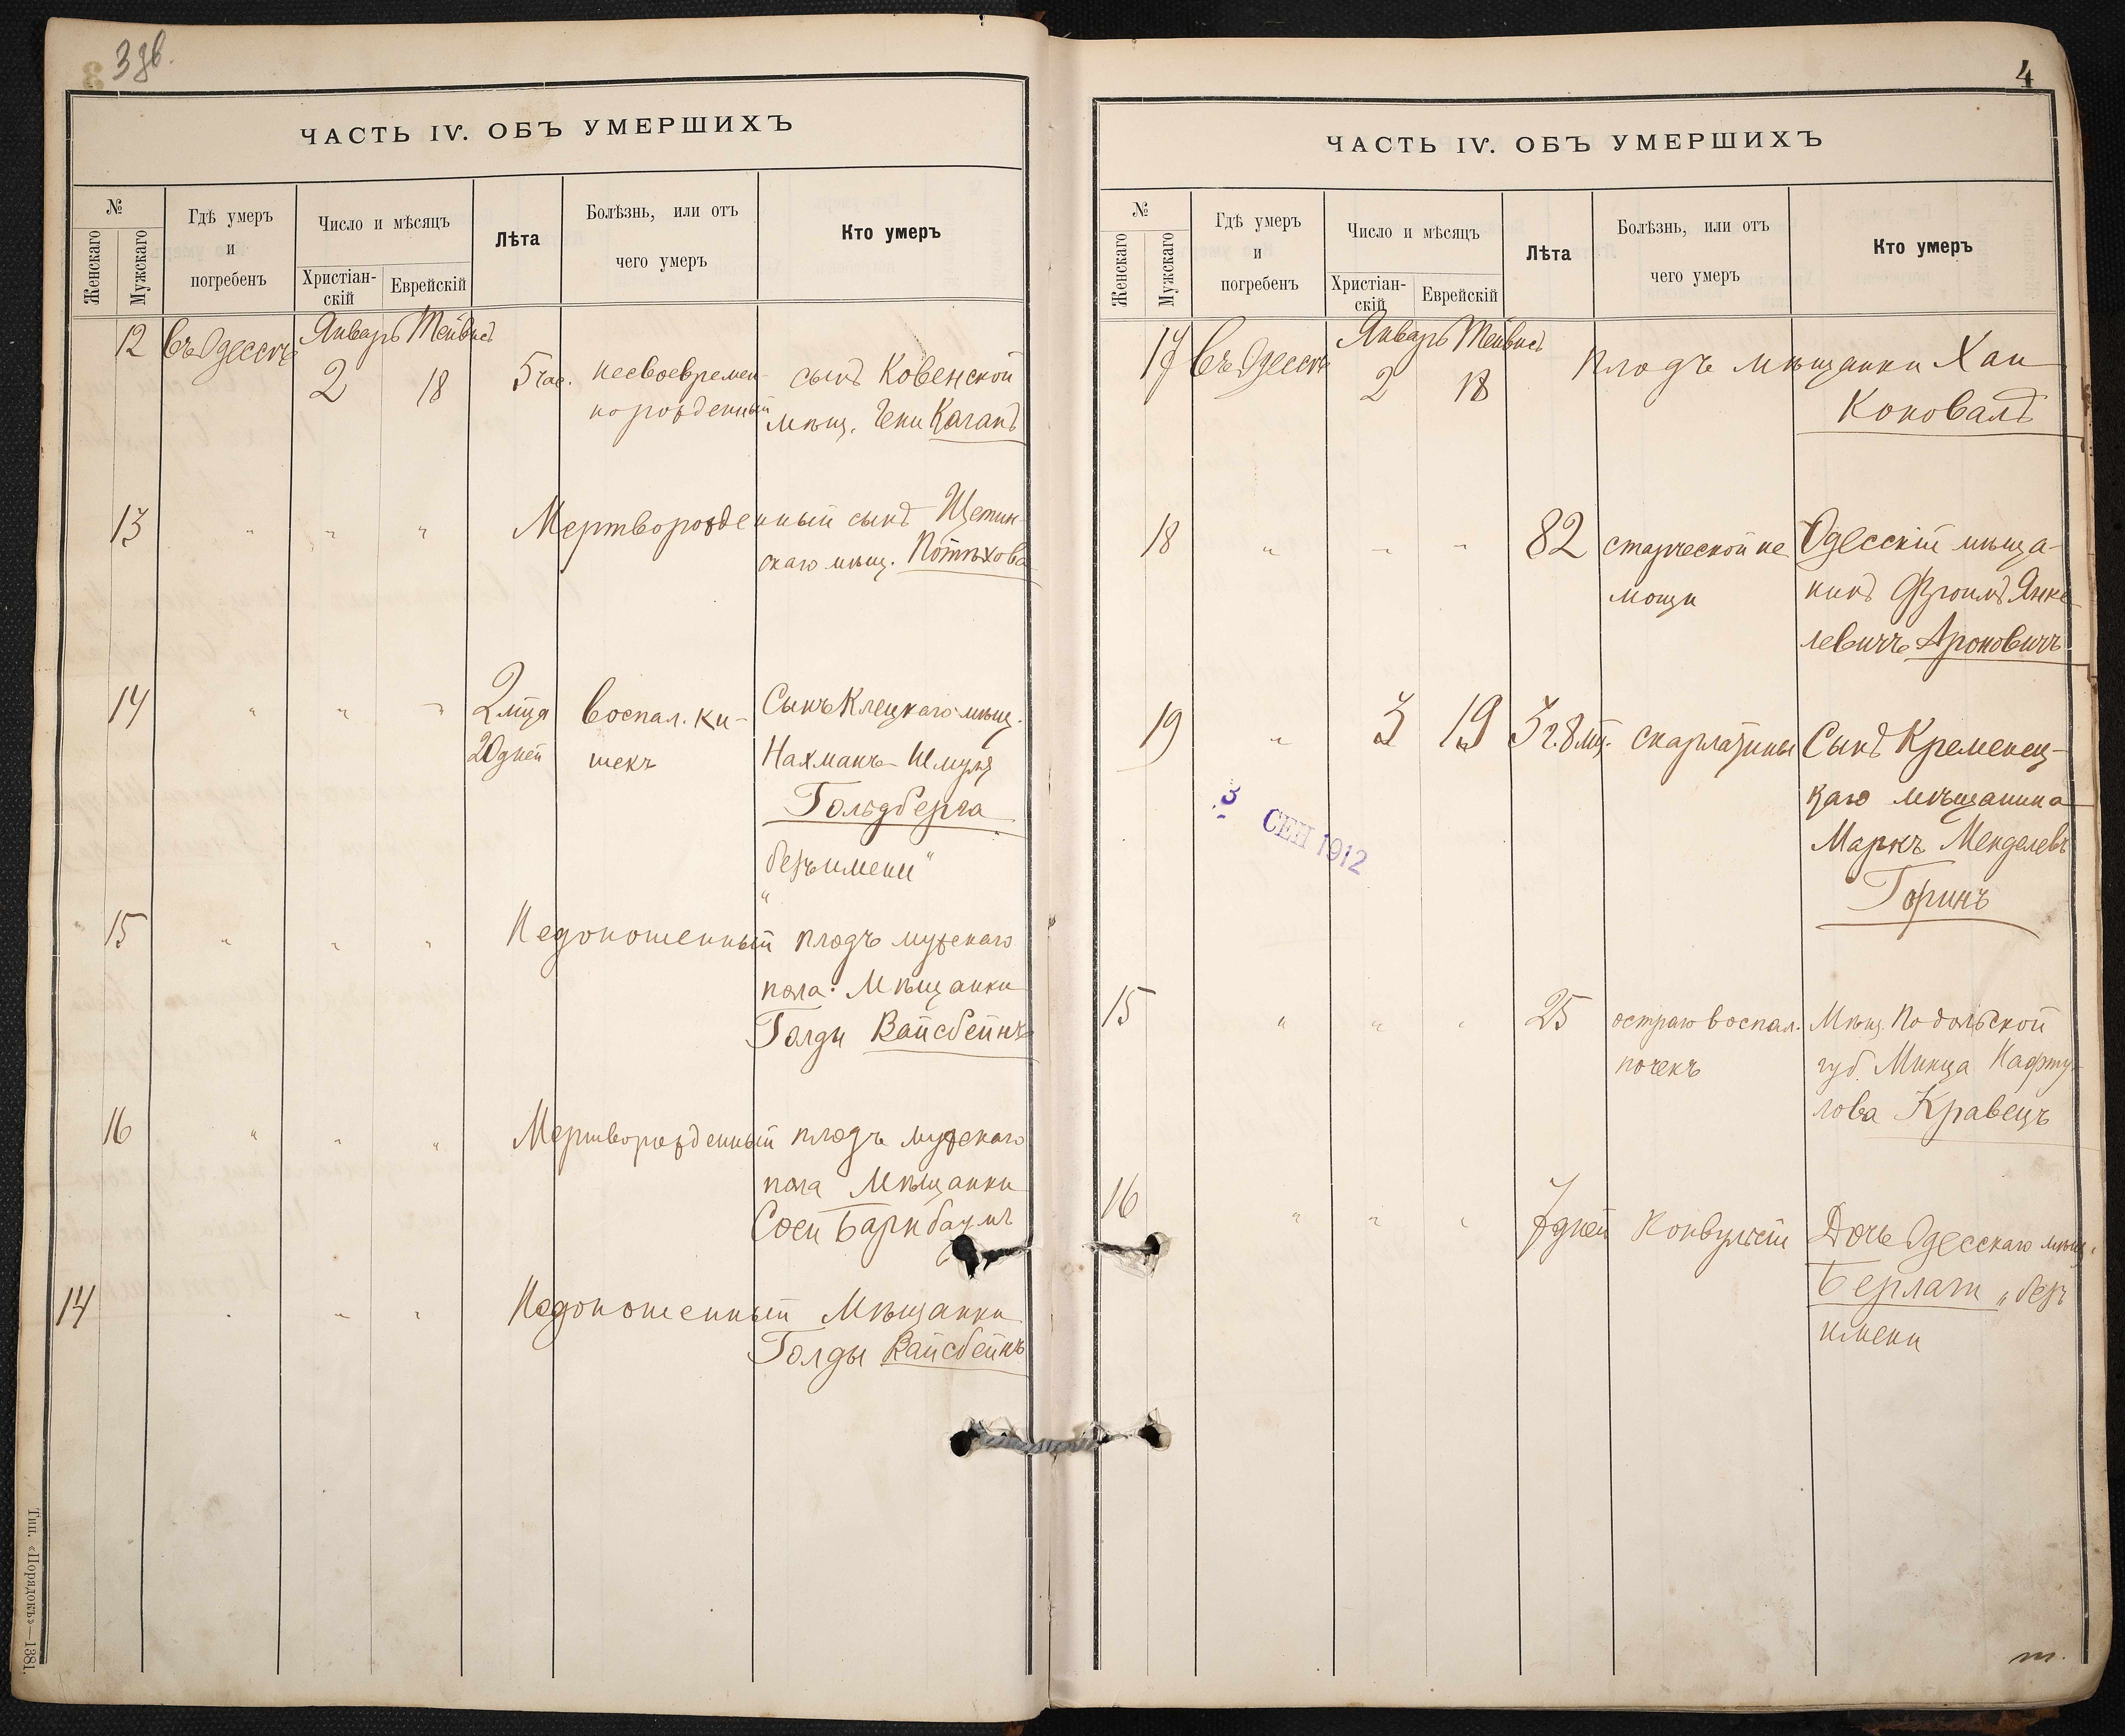 3 зв.
ЧАСТЬ IV. ОБЪ УМЕРШИХЪ
№
Женскаго
Мужскаго
Гдѣ умеръ
и
погребенъ
Число и мѣсяцъ
Христіан-
скій
Еврейскій
Лѣта
Болѣзнь, или отъ
чего умеръ
Кто умеръ
12 въ Одессѣ Январь Тейвисъ
2 18 5 час. несвоевремен- сынъ Ковенской
норожденный мѣщ. Гени Каганъ
13 " " " Мертворожденный сынъ Щетин-
скаго мѣщ. Потѣхова
14 " " " 2 мца воспал. ки- Сынъ Клецкаго мѣщ.
20 дней шекъ Нахманъ-Шмуля
Гольдберга
безъ имени"
"
15 " " " Недоношенный плодъ мужскаго
пола Мѣщанки
Голди Вайсбейнъ
16 " " " Мертворожденный плодъ мужскаго
пола Мѣщанки
Соси Барнбаумъ
14 " " " Недоношенный Мѣщанки
Голды Вайсбейнъ
Тип. «Порядокъ»—1881.
4
ЧАСТЬ IV. ОБЪ УМЕРШИХЪ
№
Женскаго
Мужскаго
Гдѣ умеръ
и
погребенъ
Число и мѣсяцъ
Христіан-
скій
Еврейскій
Лѣта
Болѣзнь, или отъ
чего умеръ
Кто умеръ
17 въ Одессѣ Январь Тейвисъ
2 18 Плодъ мѣщанки Хаи
Коновалъ
18 " " " 82 старческой не Одесскій мѣща-
мощи нинъ Фроимъ Янке
левичъ Ароновичъ
19 " 3 19 3 г. 8 мц. скарлатины Сынъ Кременец-
каго мѣщанина
Маркъ Менделевъ
Горинъ
3 СЕН 1912
15 " " " 25 остраго воспал. Мѣщ. Подольской
почекъ губ. Минца Нафту-
лова Кравецъ
16 " " " 7 дней Конвульсіи Дочь Одесскаго мѣщ.
Берлаги „безъ
имени
т.